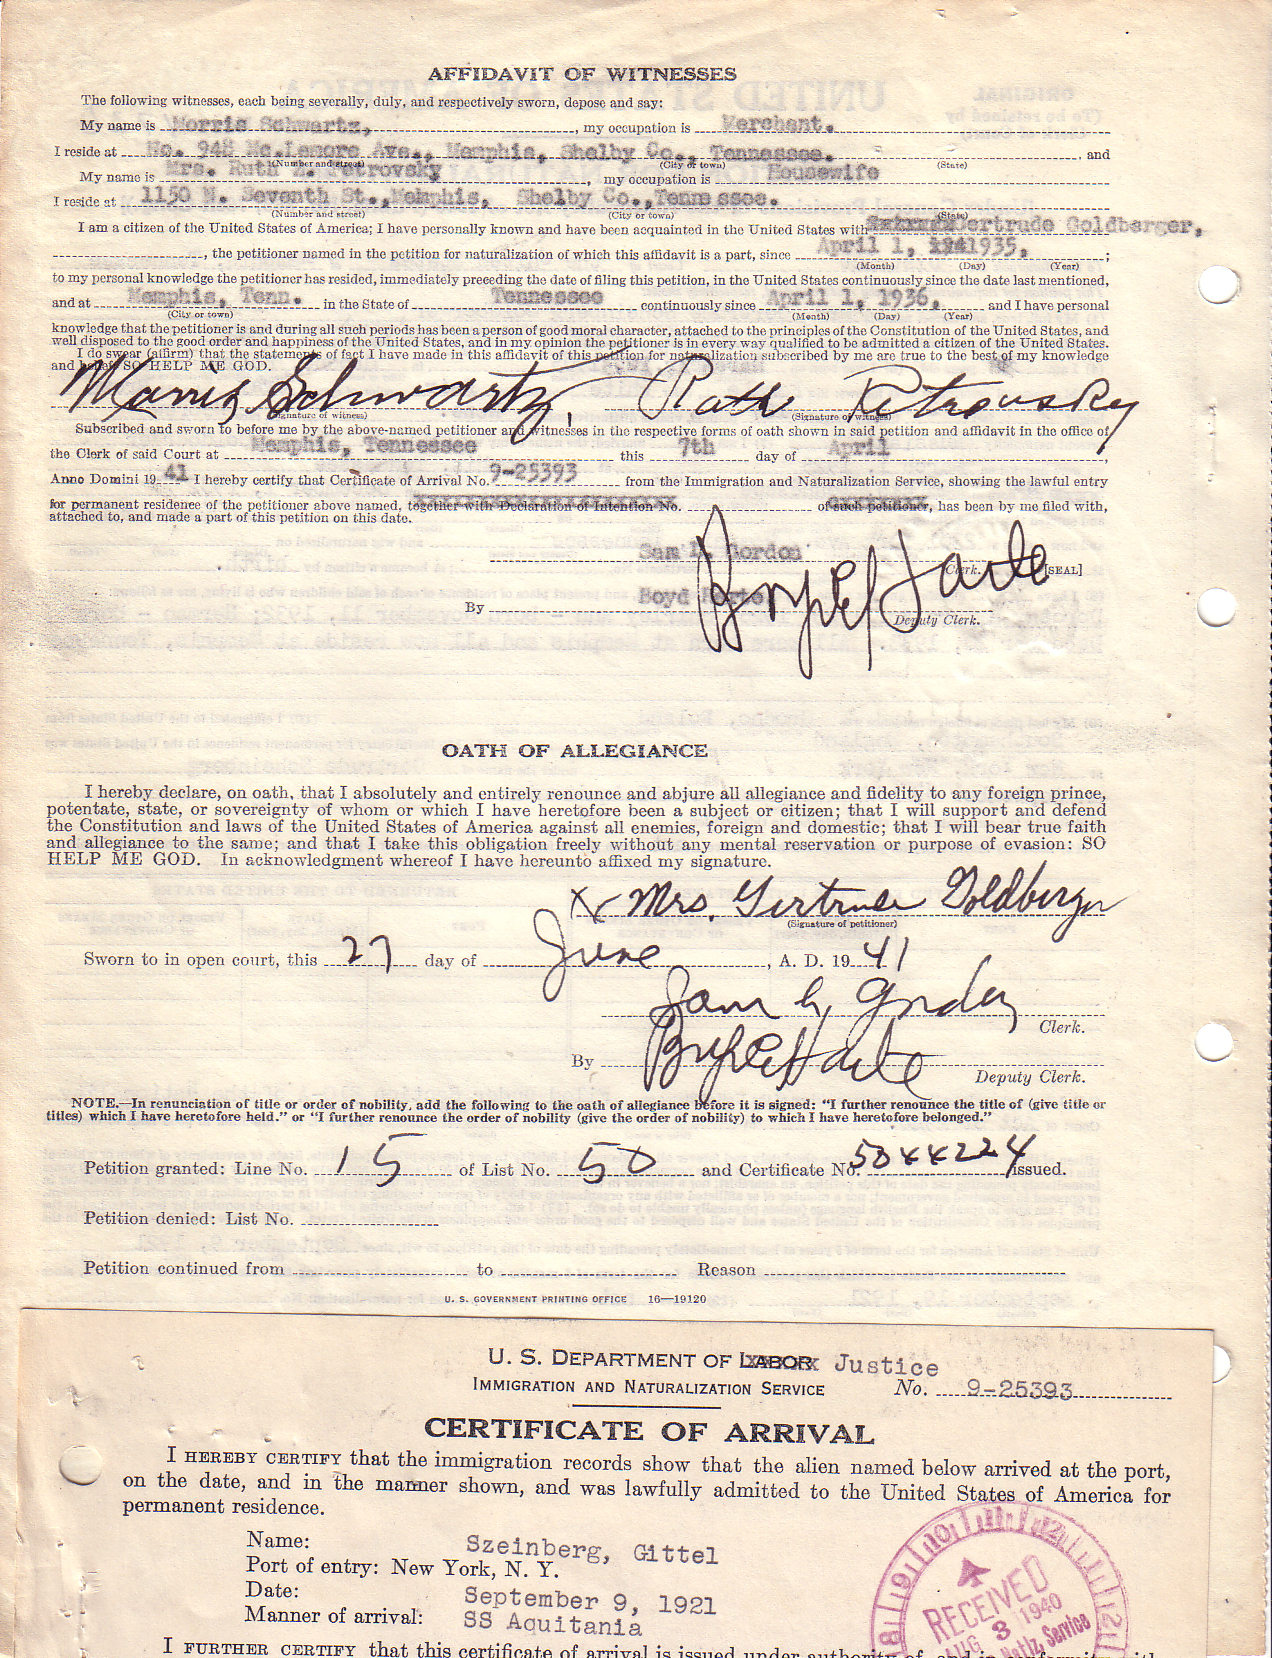 AFFIDAVIT OF WITNESSES
The following witnesses, each being severally, duly, and respectively sworn, depose and say:
My name is Morris Schwartz, , my occupation is Merchant.
I reside at No. 948 Mc.Lemore Ave., Memphis, Shelby Co., Tennessee. , and
(Number and street) (City or town) (State)
My name is Mrs. Ruth Z. Petrovsky , my occupation is Housewife
I reside at 1150 N. Seventh St.,Memphis, Shelby Co.,Tenne ssee.
(Number and street) (City or town) (State)
I am a citizen of the United States of America; I have personally known and have been acquainted in the United States with Gertrude Goldberger,
, the petitioner named in the petition for naturalization of which this affidavit is a part, since April 1, 1935, ;
(Month) (Day) (Year)
to my personal knowledge the petitioner has resided, immediately preceding the date of filing this petition, in the United States continuously since the date last mentioned,
and at Memphis, Tenn. in the State of Tennessee continuously since April 1, 1936, and I have personal
(City or town) (Month) (Day) (Year)
knowledge that the petitioner is and during all such periods has been a person of good moral character, attached to the principles of the Constitution of the United States, and
well disposed to the good order and happiness of the United States, and in my opinion the petitioner is in every way qualified to be admitted a citizen of the United States.
I do swear (affirm) that the statements of fact I have made in this affidavit of this petition for naturalization subscribed by me are true to the best of my knowledge
and belief SO HELP ME GOD.
Morris Schwartz, Ruth Petrovsky
(Signature of witness) (Signature of witness)
Subscribed and sworn to before me by the above-named petitioner and witnesses in the respective forms of oath shown in said petition and affidavit in the office of
the Clerk of said Court at Memphis, Tennessee this 7th day of April ,
Anno Domini 1941 I hereby certify that Certificate of Arrival No. 9-25393 from the Immigration and Naturalization Service, showing the lawful entry
for permanent residence of the petitioner above named, together with Declaration of Intention No. of such petitioner, has been by me filed with,
attached to, and made a part of this petition on this date.
Sam L. Gordon
Clerk. [SEAL]
By Boyd Harte,
Deputy Clerk.
OATH OF ALLEGIANCE
I hereby declare, on oath, that I absolutely and entirely renounce and abjure all allegiance and fidelity to any foreign prince,
potentate, state, or sovereignty of whom or which I have heretofore been a subject or citizen; that I will support and defend
the Constitution and laws of the United States of America against all enemies, foreign and domestic; that I will bear true faith
and allegiance to the same; and that I take this obligation freely without any mental reservation or purpose of evasion: SO
HELP ME GOD. In acknowledgment whereof I have hereunto affixed my signature.
X Mrs. Gertrude Goldberger
(Signature of petitioner)
Sworn to in open court, this 27 day of June , A. D. 1941
Sam L. Gordon
Clerk.
By Boyd Harte
Deputy Clerk.
NOTE.—In renunciation of title or order of nobility, add the following to the oath of allegiance before it is signed: "I further renounce the title of (give title or
titles) which I have heretofore held." or "I further renounce the order of nobility (give the order of nobility) to which I have heretofore belonged."
Petition granted: Line No. 15 of List No. 50 and Certificate No. 5044224 issued.
Petition denied: List No.
Petition continued from to Reason
U. S. GOVERNMENT PRINTING OFFICE 16—19120
U. S. DEPARTMENT OF LABOR Justice
IMMIGRATION AND NATURALIZATION SERVICE No. 9-25393
CERTIFICATE OF ARRIVAL
I HEREBY CERTIFY that the immigration records show that the alien named below arrived at the port,
on the date, and in the manner shown, and was lawfully admitted to the United States of America for
permanent residence.
Name: Szeinberg, Gittel
Port of entry: New York, N. Y.
Date: September 9, 1921
Manner of arrival: SS Aquitania
RECEIVED
AUG 3 1940
Natlz. Service
I FURTHER CERTIFY that this certificate of arrival is issued under authority of, and in conformity with